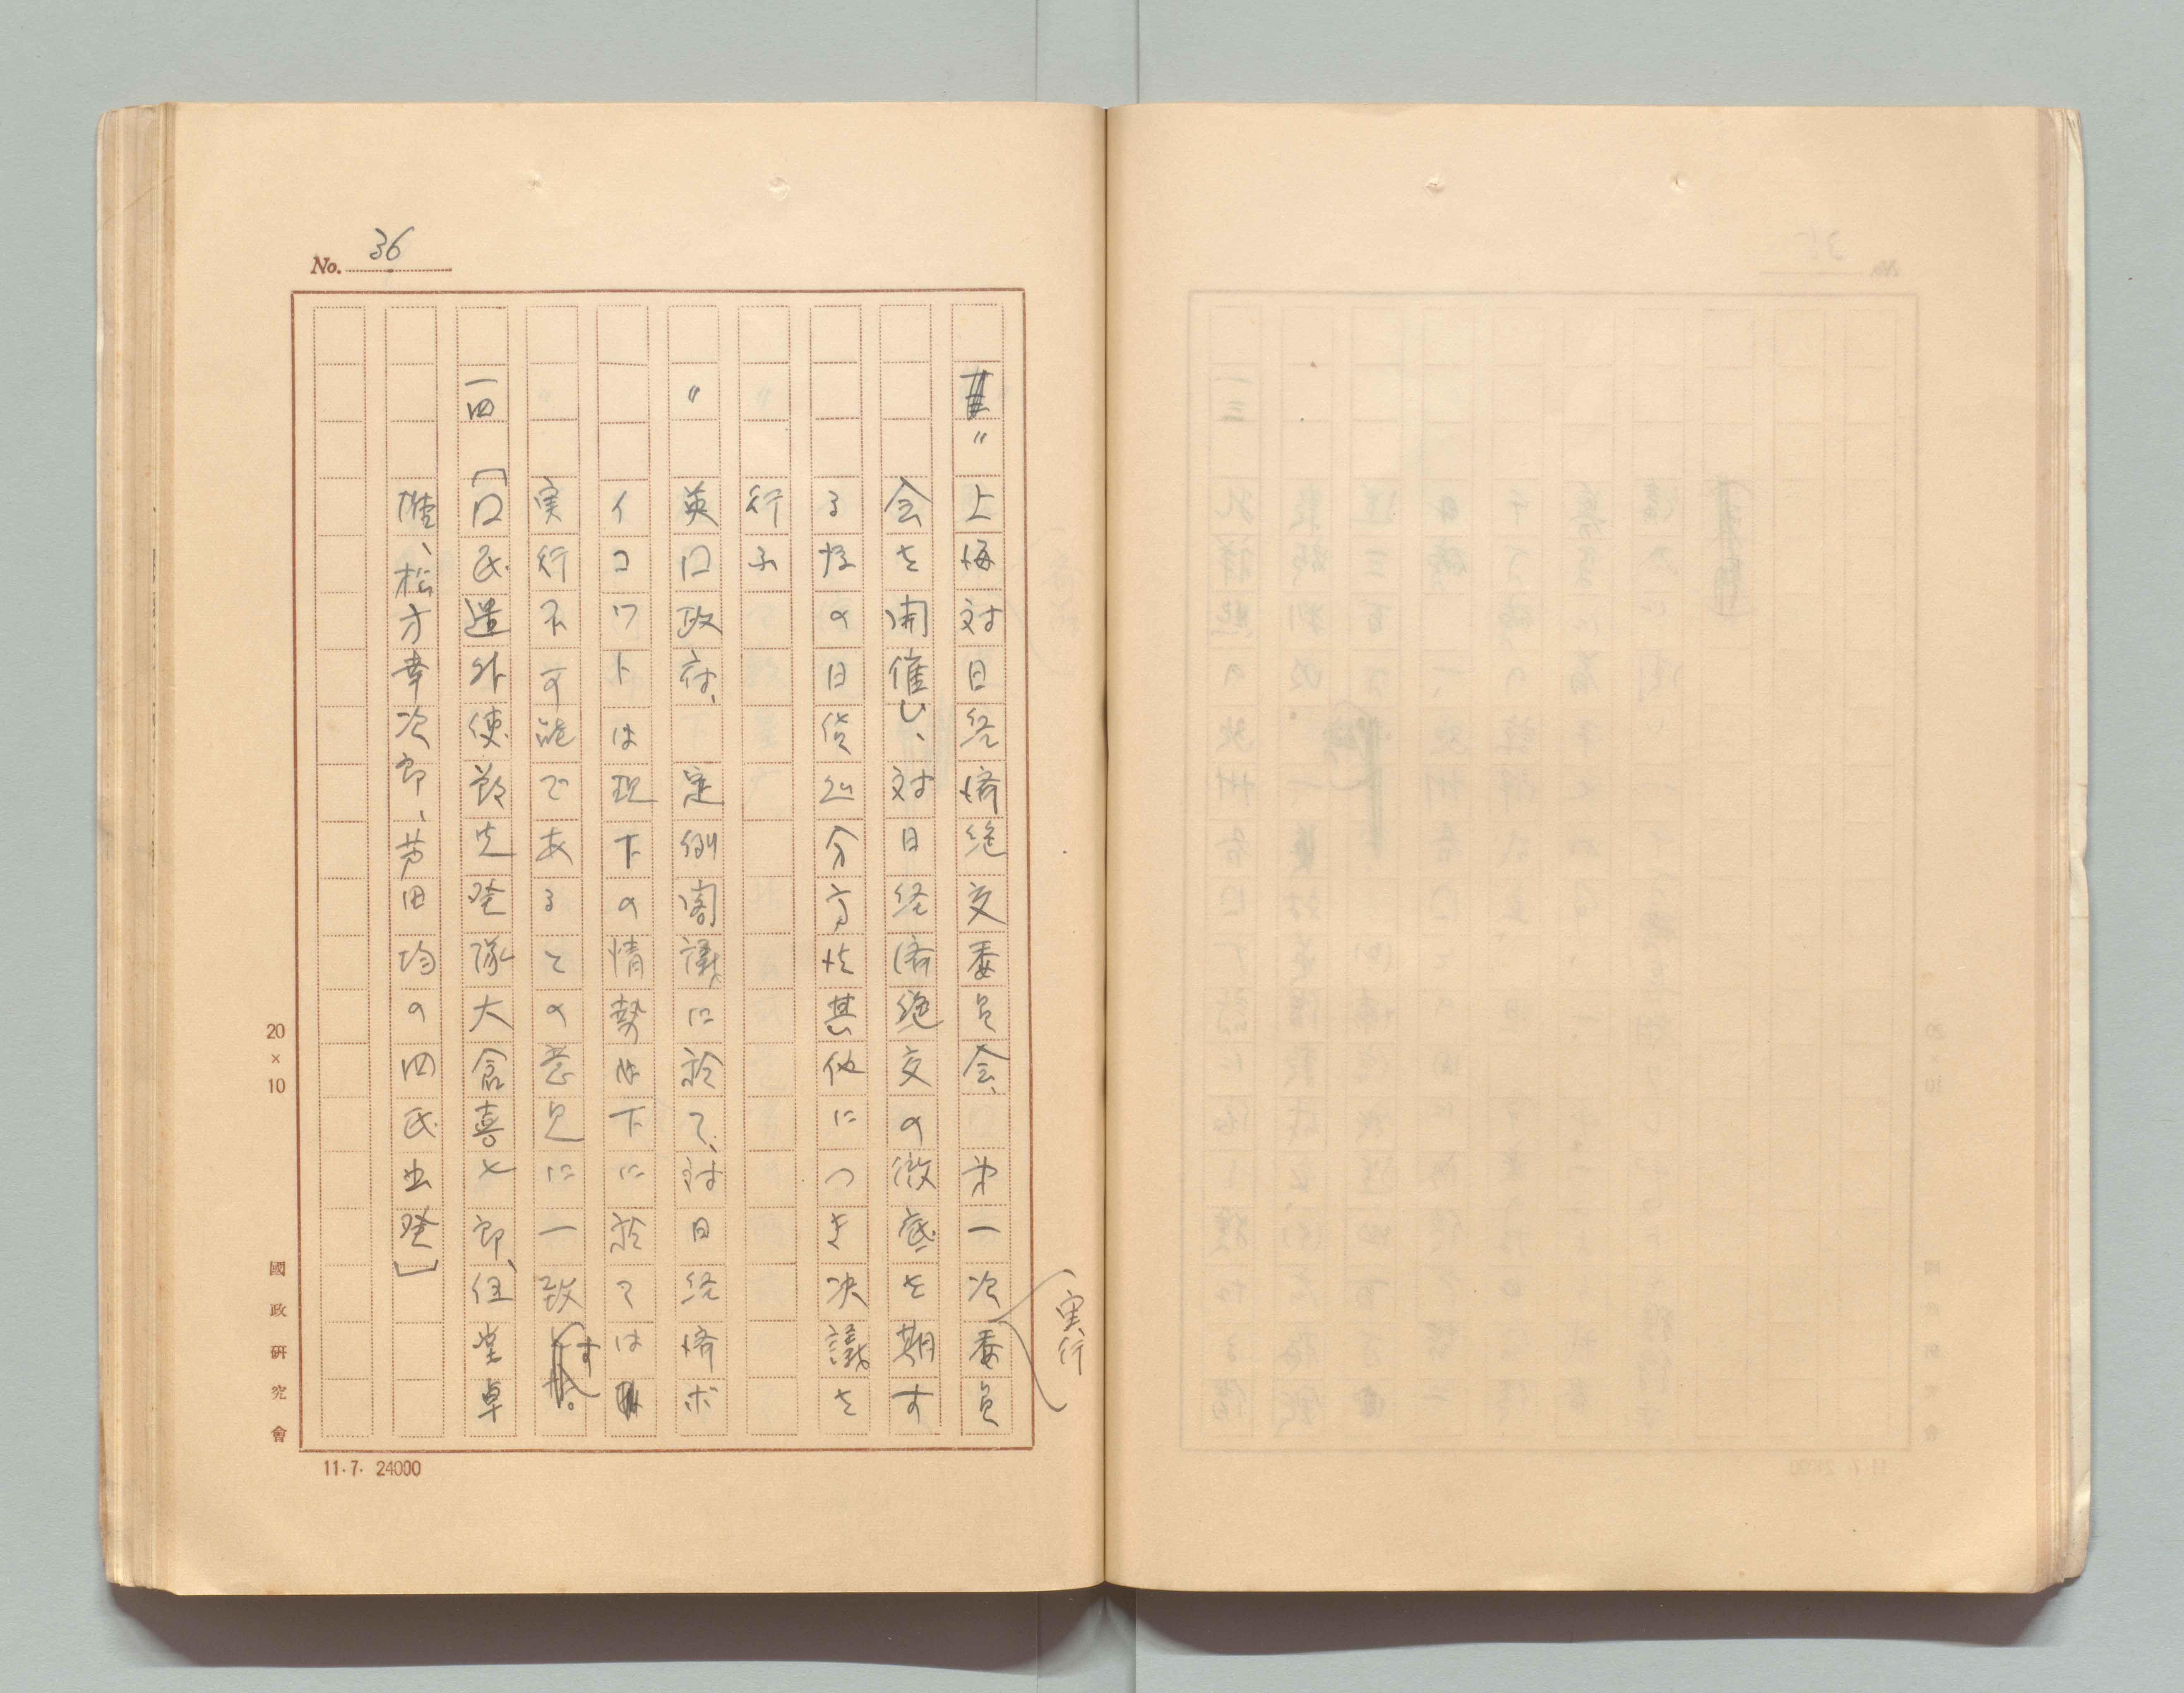 No. 36
〃 上海対日経済絶交委員会、第一次実行委員
会を開催し、対日経済絶交の徹底を期す
る為の日貨処分方法其他につき決議を
行ふ
〃 英国政府、定例閣議に於て、対日経済ボ
イコツトは現下の情勢は下に於ては
実行不可能であるとの意見に一致す。
一四 〔国民遣外使節先発隊大倉喜七郎、伍堂卓
雄、松方幸次郎、芦田均の四氏出発〕
20×10
國政研究會
11.7. 24000